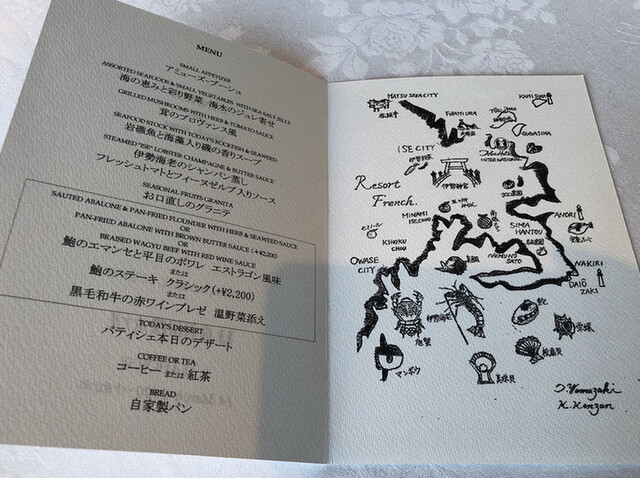 MENU
SMALL APPETIZER
アミューズ・ブーシュ
ASSORTED SEAFOODS & SMALL VEGETABLES WITH SEA SALT JELLY
海の恵みと彩り野菜 海水のジュレ寄せ
GRILLED MUSHROOMS WITH HERB & TOMATO SAUCE
茸のプロヴァンス風
SEAFOOD STOCK WITH TODAY'S ROCKFISH & SEAWEED
岩磯魚と海藻入り磯の香りスープ
STEAMED "ISE" LOBSTER CHAMPAGNE & BUTTER SAUCE
伊勢海老のシャンパン蒸し
フレッシュトマトとフィーヌゼルブ入りソース
SEASONAL FRUITS GRANITA
お口直しのグラニテ
SAUTED ABALONE & PAN-FRIED FLOUNDER WITH HERB & SEAWEED SAUCE
OR
PAN-FRIED ABALONE WITH BROWN BUTTER SAUCE (+¥2,200)
OR
BRAISED WAGYU BEEF WITH RED WINE SAUCE
鮑のエマンセと平目のポワレ エストラゴン風味
または
鮑のステーキ クラシック(+¥2,200)
または
黒毛和牛の赤ワインブレゼ 温野菜添え
TODAY'S DESSERT
パティシェ本日のデザート
COFFEE OR TEA
コーヒー または 紅茶
BREAD
自家製パン
MATSUSAKA CITY
KAMISIMA
FUTAMIURA
TOBA
SUGASIMA
ISE CITY
伊勢神宮
Resort
French.
MINAMI
ISECHO
SIMA
HANTOU
ANORI
KHOKU
CHOU
OWASE
CITY
NAKIRI
DAIO
ZAKI
伊勢海老
マンボウ